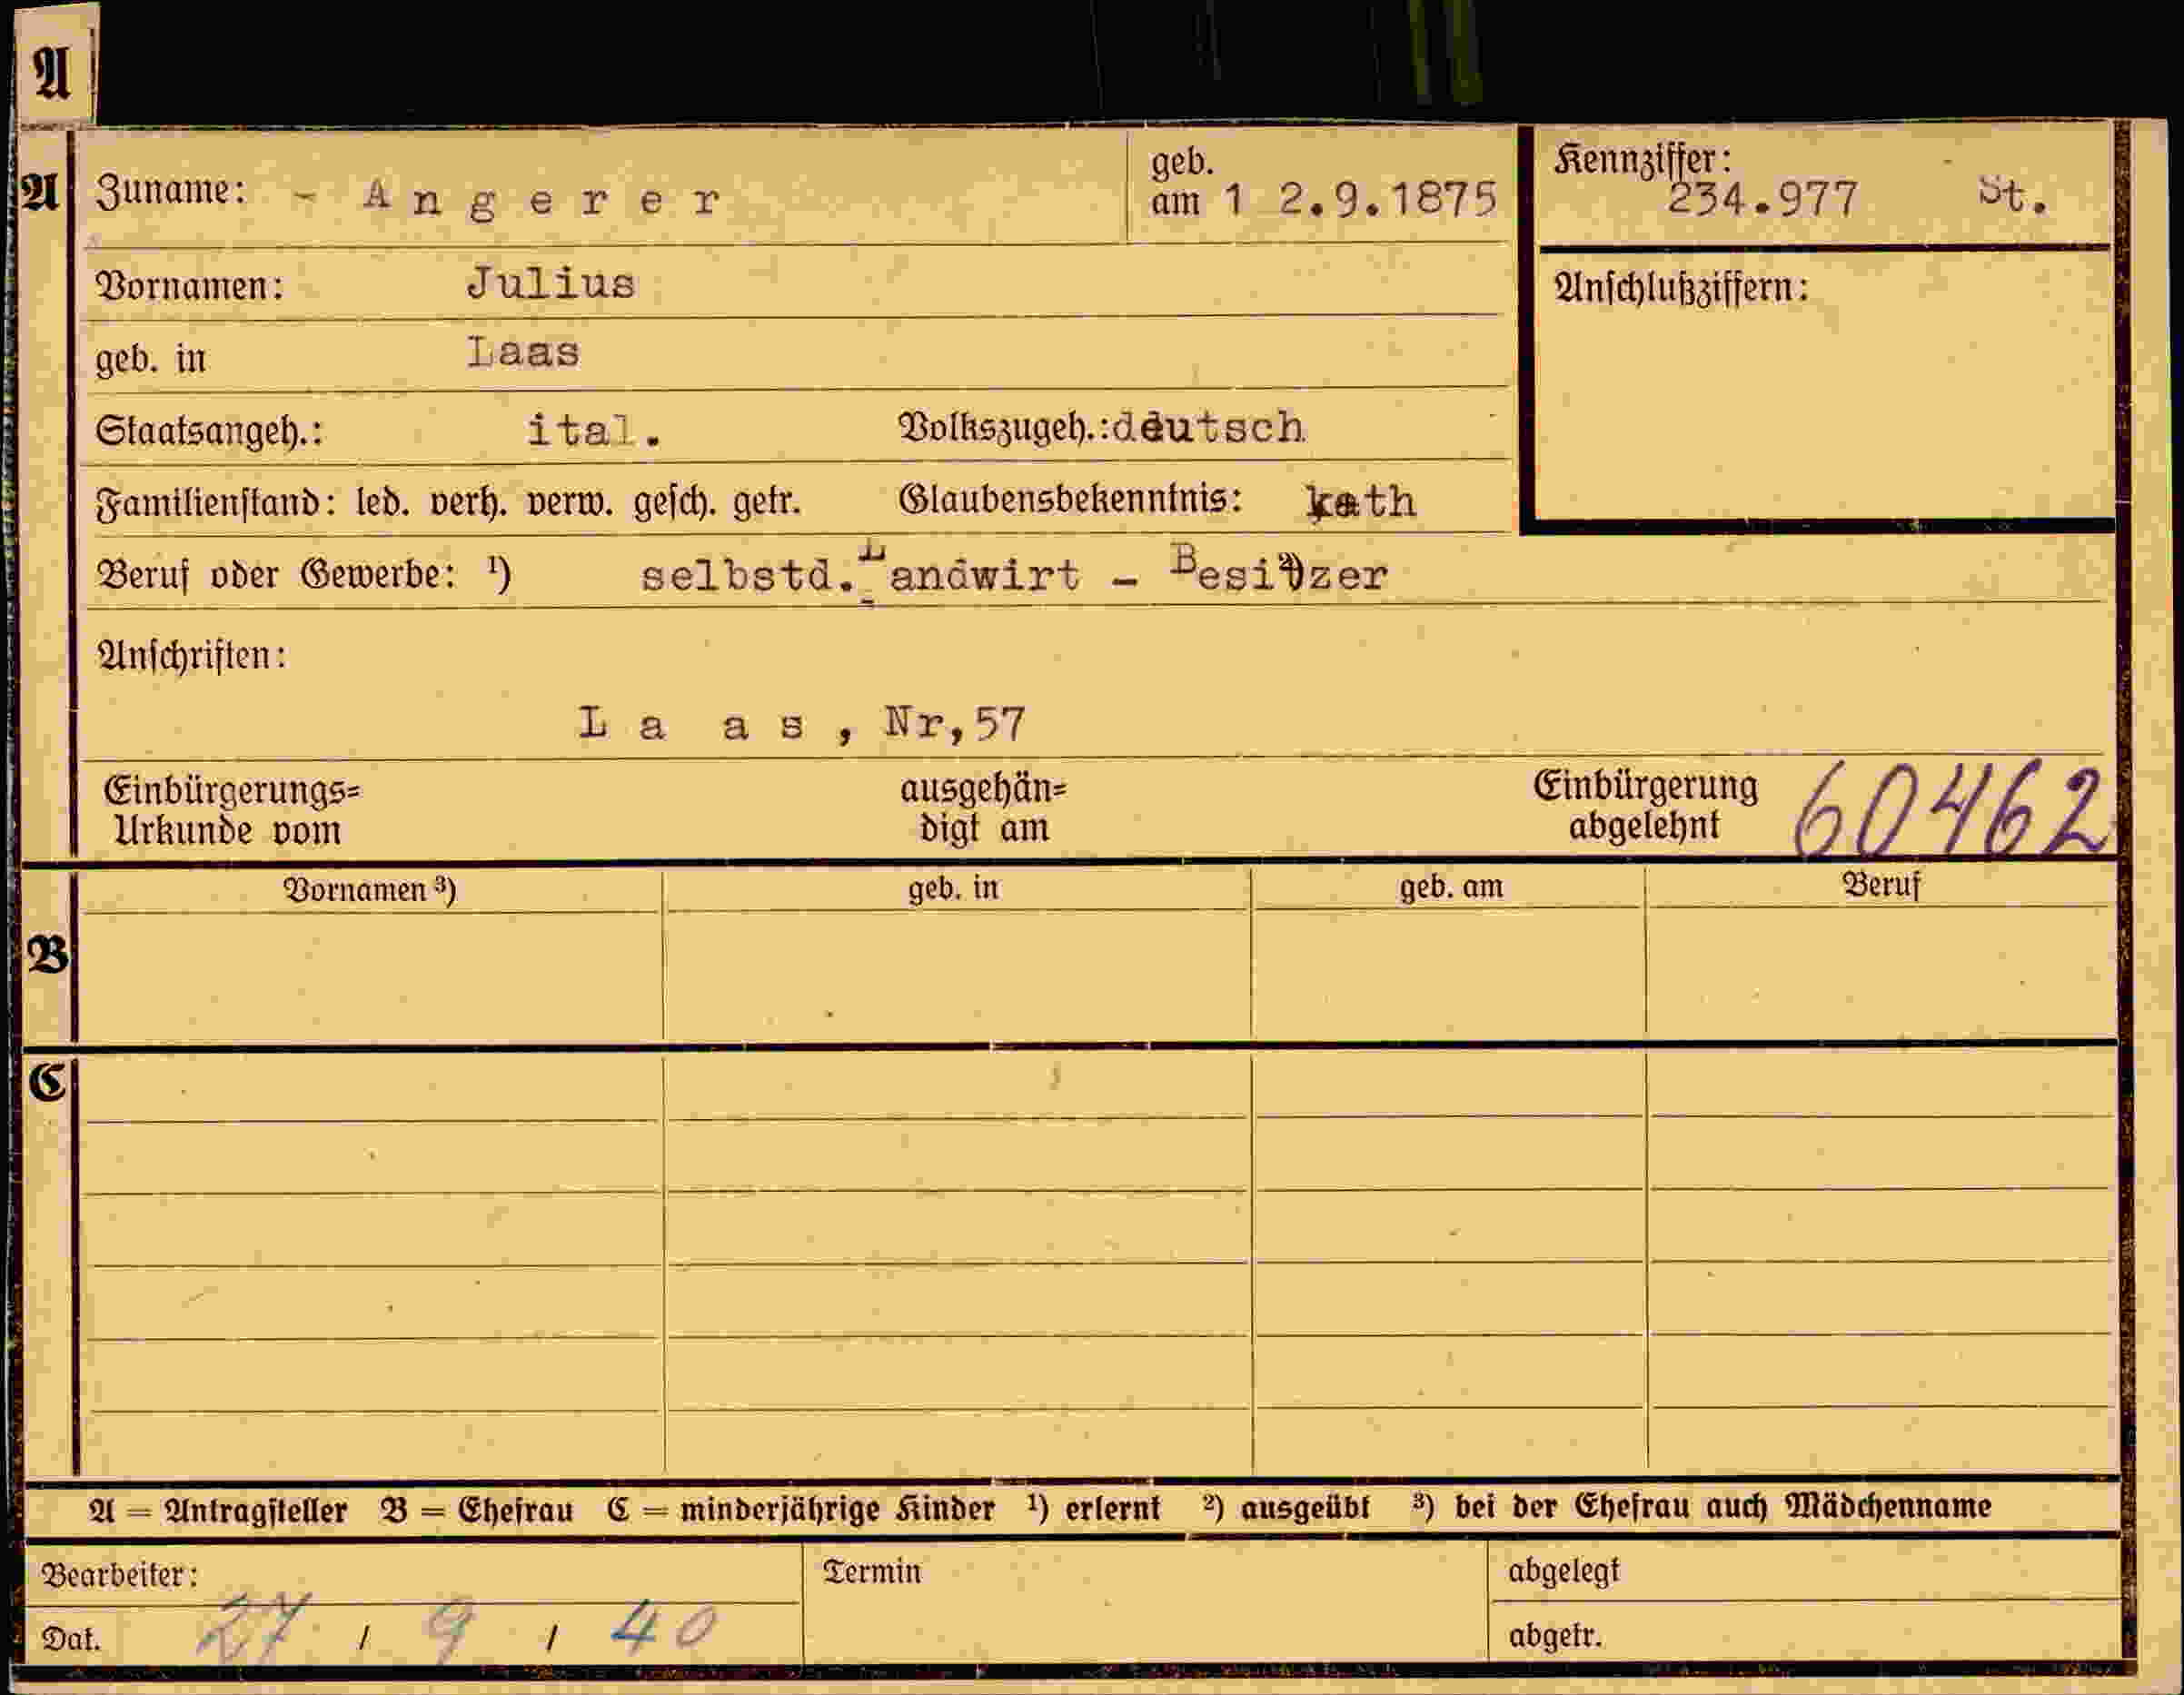 A
A
Zuname: - A n g e r e r
geb.
am 1 2.9.1875
Kennziffer:
234.977 St.
Vornamen: Julius
Anschlußziffern:
geb. in Laas
Staatsangeh.: ital. Volkszugeh.: deutsch
Familienstand: led. verh. verw. gesch. getr. Glaubensbekenntnis: kath
Beruf oder Gewerbe: ¹) selbstd. Landwirt - Besi²)zer
Anschriften:
L a a s , Nr,57
Einbürgerungs=
Urkunde vom
ausgehän=
digt am
Einbürgerung
abgelehnt
60462
B
Vornamen ³) geb. in geb. am Beruf
C
A = Antragsteller B = Ehefrau C = minderjährige Kinder ¹) erlernt ²) ausgeübt ³) bei der Ehefrau auch Mädchenname
Bearbeiter: Termin abgelegt
Dat. 27 / 9 / 40 abgetr.